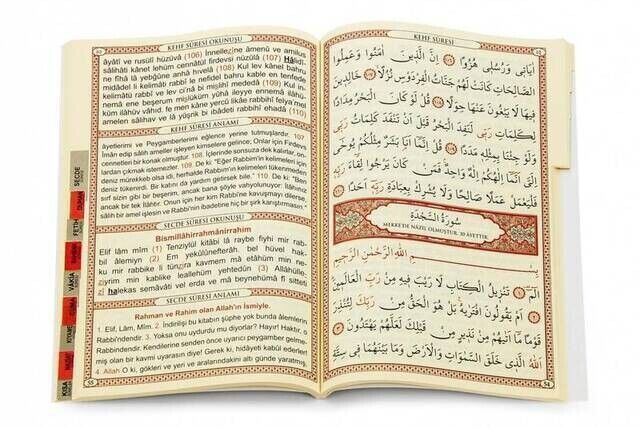 KEHF SÛRESİ OKUNUŞU
âyâtî ve rusulî hüzüvâ (106) İnnellezîne âmenû ve amilus
sâlihâti kânet lehüm cennâtül firdevsi nüzülâ (107) Hâlidî-
fîhâ lâ yebğûne anhâ hıvelâ (108) Kul lev kânel bahru
midâdel li kelimâti rabbî le nefidel bahru kable en tenfede
kelimâtü rabbî ve lev ci'nâ bi mislihî mededâ (109) Kul in-
nemâ ene beşerum mislüküm yûhâ ileyye ennemâ ilâhü-
amelen sâlihav ve lâ yüşrik bi ibâdeti rabbihî ehadâ (110)
KEHF SÛRESİ ANLAMI
âyetlerimi ve Peygamberlerimi eğlence yerine tutmuşlardır. 107
İman edip salih ameller işleyen kimselere gelince; Onlar için Firdevs
cennetleri bir konak olmuştur. 108. İçlerinde sonsuza dek kalırlar, on-
lardan çıkmak istemezler. 109. De ki: "Eğer Rabbim'in kelimeleri için
deniz mürekkeb olsa idi, herhalde Rabbim'in kelimeleri tükenmeden
deniz tükenirdi. Bir katını da yardım getirsek bile." 110. De ki: "Ben
sırf sizin gibi bir beşerim, ancak bana şöyle vahyolunuyor: İlâhınız
ancak bir tek İlâhtır. Onun için her kim Rabbi'ne kavuşmayı dilerse,
salih bir amel işlesin ve Rabbi'nin ibadetine hiç bir şirk karıştırmasın."
SECDE SÛRESİ OKUNUŞU
Bismillâhirrahmânirrahîm
Elif lâm mîm (1) Tenzîylül kitâbi lâ raybe fîyhi mir rab-
bil âlemîyn (2) Em yekûlûnefterâh, bel hüvel hak-
ku mir rabbike li tünzira kavmem mâ etâhüm min ne-
zîyrim min kablike leallehüm yehtedûn (3) Allâhülle-
zî halekas semâvâti vel erda ve mâ beynehümâ fî sitteti
SECDE SÛRESİ ANLAMI
Rahman ve Rahim olan Allah'ın İsmiyle.
1. Elif, Lâm, Mîm. 2. İndirilişi bu kitabın şüphe yok bunda âlemlerin
Rabbi'ndendir. 3. Yoksa onu uydurdu mu diyorlar? Hayır! Haktır, o
Rabbi'ndendir. Kendilerine senden önce uyarıcı peygamber gelme-
miş olan bir kavmi uyarasın diye! Gerek ki, hidâyeti kabul ederler!
4. Allah O ki, gökleri ve yeri ve aralarındakini altı günde yaratmış,
SECDE
DUHAN
FETİH
VÂKIA
KEHF SÛRESİ
اٰيَاتِي وَرُسُلِي هُزُوًا اِنَّ الَّذِينَ اٰمَنُوا وَعَمِلُوا
الصَّالِحَاتِ كَانَتْ لَهُمْ جَنَّاتُ الْفِرْدَوْسِ نُزُلًا خَالِدِينَ
فِيهَا لَا يَبْغُونَ عَنْهَا حِوَلًا قُلْ لَوْ كَانَ الْبَحْرُ مِدَادًا
لِكَلِمَاتِ رَبِّي لَنَفِدَ الْبَحْرُ قَبْلَ اَنْ تَنْفَدَ كَلِمَاتُ رَبِّي
وَلَوْ جِئْنَا بِمِثْلِهِ مَدَدًا قُلْ اِنَّمَا اَنَا بَشَرٌ مِثْلُكُمْ يُوحٰى
اِلَيَّ اَنَّمَا اِلٰهُكُمْ اِلٰهٌ وَاحِدٌ فَمَنْ كَانَ يَرْجُوا لِقَاءَ رَبِّهِ
فَلْيَعْمَلْ عَمَلًا صَالِحًا وَلَا يُشْرِكْ بِعِبَادَةِ رَبِّهِ اَحَدًا
سُورَةُ السَّجْدَةِ
MEKKE'DE NÂZİL OLMUŞTUR. 30 ÂYETTİR.
بِسْمِ اللّٰهِ الرَّحْمٰنِ الرَّحِيمِ
الٓمٓ تَنْزِيلُ الْكِتَابِ لَا رَيْبَ فِيهِ مِنْ رَبِّ الْعَالَمِينَ
اَمْ يَقُولُونَ افْتَرٰيهُ بَلْ هُوَ الْحَقُّ مِنْ رَبِّكَ لِتُنْذِرَ
قَوْمًا مَا اَتٰيهُمْ مِنْ نَذِيرٍ مِنْ قَبْلِكَ لَعَلَّهُمْ يَهْتَدُونَ
اَللّٰهُ الَّذِي خَلَقَ السَّمٰوَاتِ وَالْاَرْضَ وَمَا بَيْنَهُمَا فِي سِتَّةِ